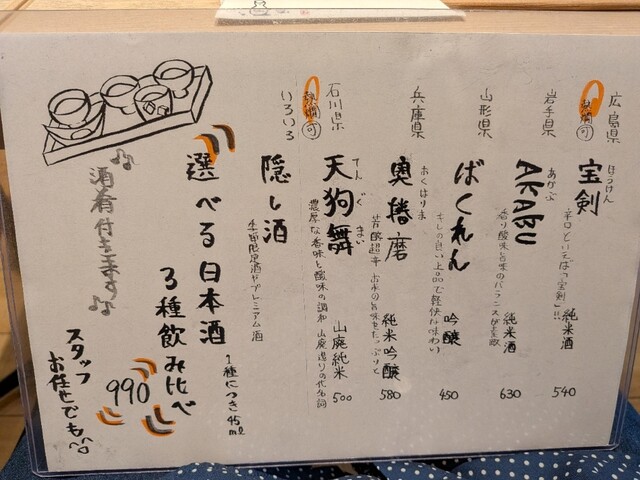 広島県
熱燗可
宝剣
ほうけん
辛口といえばっ宝剣!!
純米酒
540
岩手県
AKABU
あかぶ
香り酸味と旨味のバランスが素敵
純米酒
630
山形県
ばくれん
キレの良い上品で軽快な味わい
吟醸
450
兵庫県
奥播磨
おくはりま
芳醇超辛 お米の旨味をたっぷりと
純米吟醸
580
石川県
熱燗可
天狗舞
てんぐまい
濃厚な香味と酸味の調和 山廃造りの代名詞
山廃純米
500
いろいろ
隠し酒
季節限定酒やプレミアム酒
選べる日本酒
3種飲み比べ
1種につき45ml
990
酒肴付きます♪
スタッフ
お任せでも^^◯